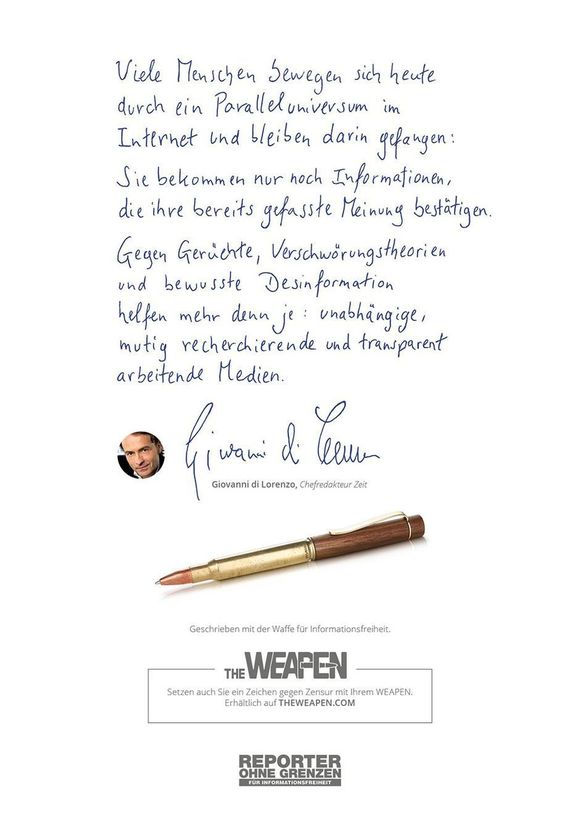 Viele Menschen bewegen sich heute
durch ein Paralleluniversum im
Internet und bleiben darin gefangen:
Sie bekommen nur noch Informationen,
die ihre bereits gefasste Meinung bestätigen.
Gegen Gerüchte, Verschwörungstheorien
und bewusste Desinformation
helfen mehr denn je: unabhängige,
mutig recherchierende und transparent
arbeitende Medien.
Giovanni di Lorenzo
Giovanni di Lorenzo, Chefredakteur Zeit
Geschrieben mit der Waffe für Informationsfreiheit.
THE WEAPEN
Setzen auch Sie ein Zeichen gegen Zensur mit Ihrem WEAPEN.
Erhältlich auf THEWEAPEN.COM
REPORTER
OHNE GRENZEN
FÜR INFORMATIONSFREIHEIT